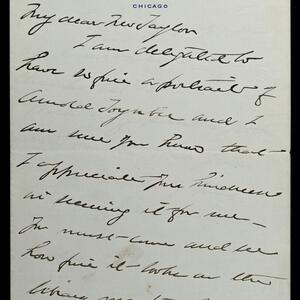 CHICAGO
My dear Mrs Taylor
I am delighted to
have so fine a portrait of
Arnold Toynbee and I
am sure you know that
I appreciate your kindness
in securing it for me –
You must come and see
how fine it looks on the
library